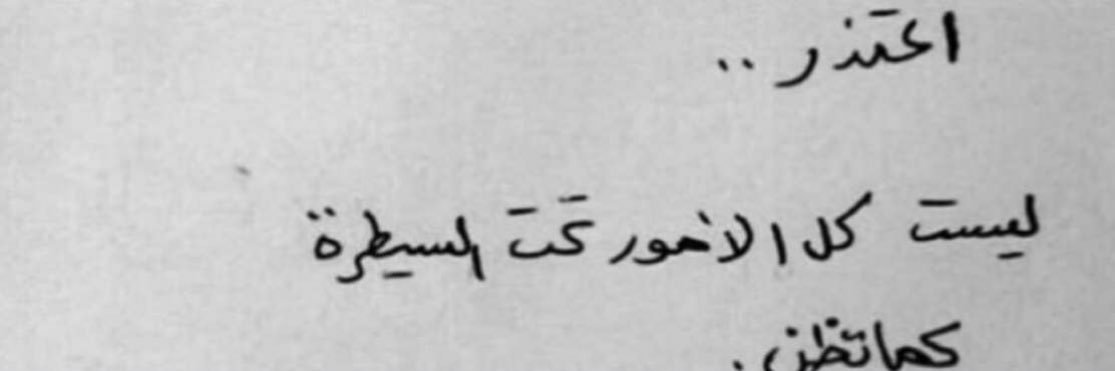 اعتذر ..
ليست كل الامور تحت السيطرة
كما تظن .